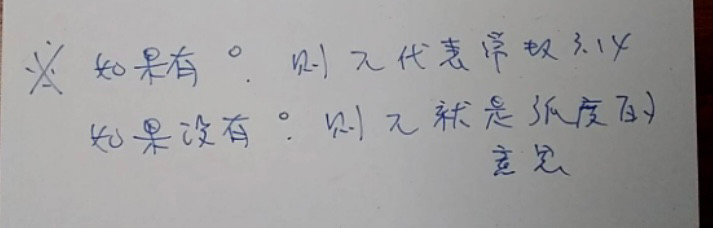 ※ 如果有°. 则π代表常数3.14
如果没有°. 则π就是弧度的
意思